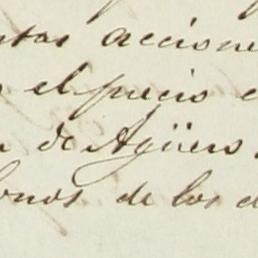 ntas accione
el precio e
a de Agüero
onos de los d